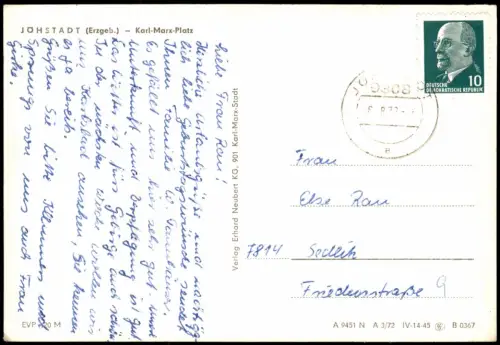 JÖHSTADT (Erzgeb.) – Karl-Marx-Platz
Liebe Frau Rau!
Herzliche Urlaubsgrüße und nachträg-
lich liebe Geburtstagswünsche sendet
Ihnen Familie
Es gefällt uns hier sehr gut. Und
Unterkunft und Verpflegung ist gut.
Das Wetter ist fürs Gebirge auch schön.
In der nächsten Woche wollen wir
uns Karlsbad ansehen, Sie kennen
es ja bereits.
Grüßen Sie bitte Klemmers und
von uns auch Frau
Verlag Erhard Neubert KG, 901 Karl-Marx-Stadt
10
DEUTSCHE
DEMOKRATISCHE REPUBLIK
Frau
Else Rau
7814 Sedlitz
Friedensstraße 9
EVP 0,20 M
A 9451 N A 3/72 IV-14-45 B 0367